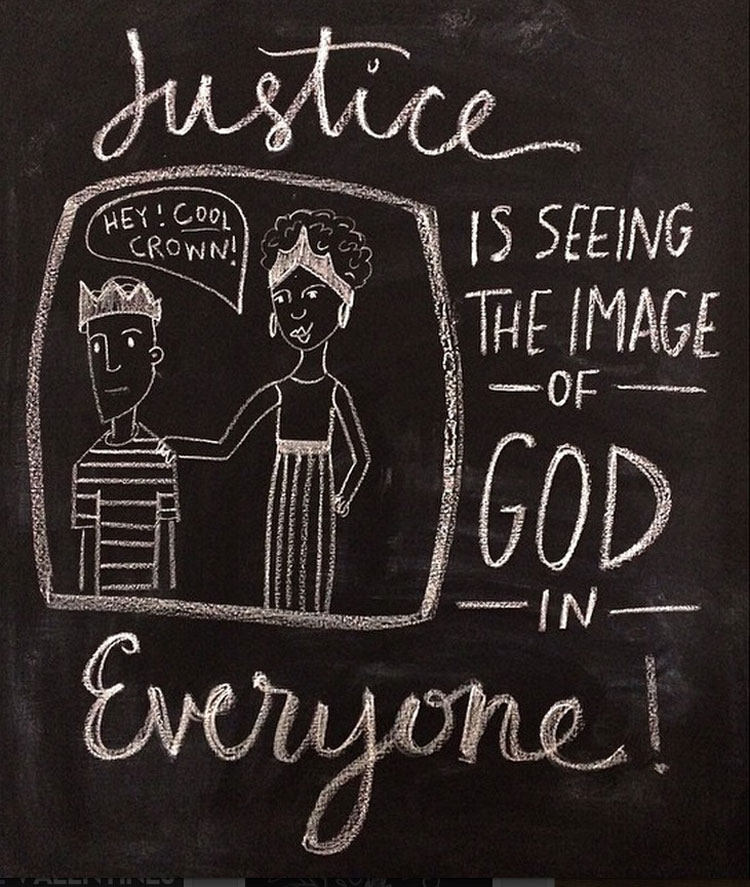 Justice
HEY! COOL
CROWN!
IS SEEING
THE IMAGE
—OF—
GOD
—IN—
Everyone!